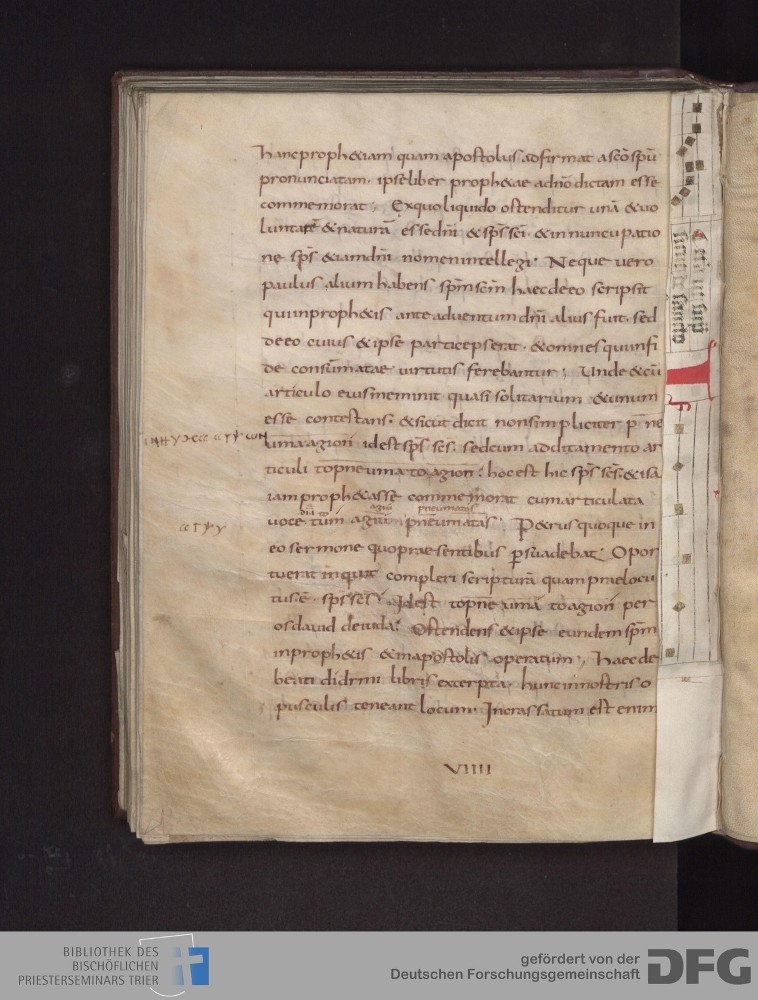 hanc proph&iam quam apostolus adfirmat a scō spū
pronunciatam· ipse liber proph&ae ad nō dictam esse
commemorat· Ex quo liquido ostenditur unā & uo
luntatē & naturā esse dnī & sps sci· & in nuncupatio
ne sps &iam dnī nomen intellegi· Neque uero
paulus alium habens spm scm haec de eo scripsit
qui in proph&is ante aduentum dnī alius fuit· sed
de eo cuius & ipse particeps erat· & omnes qui in fi
de consūmatae uirtutis ferebantur; Unde & cū
articulo eius meminit quasi solitarium & unum
esse contestans· & sicut dicit non simpliciter pne
uma agion id est sps scs· sed cum additamento ar
ticuli to pneuma to agion· hoc est hic sps scs· & isa
iam proph&asse commemorat cum articulata
dia to agiu pneumatis
uoce tum agium pneumatas· P&rus quoque in
eo sermone quo praesentibus psuadebat· Opor
tuerat inquit compleri scripturā quam praelocu
tus ē sps scs· Id est to pneuma to agion per
os dauid de iuda· Ostendens & ipse eundem spm
in proph&is & in apostolis operatum; Haec de
beati didimi libris excerpta· hunc in nostris o
pusculis teneant locum· Incrassatum est enim
VIIII
BIBLIOTHEK DES
BISCHÖFLICHEN
PRIESTERSEMINARS TRIER
gefördert von der
Deutschen Forschungsgemeinschaft
DFG